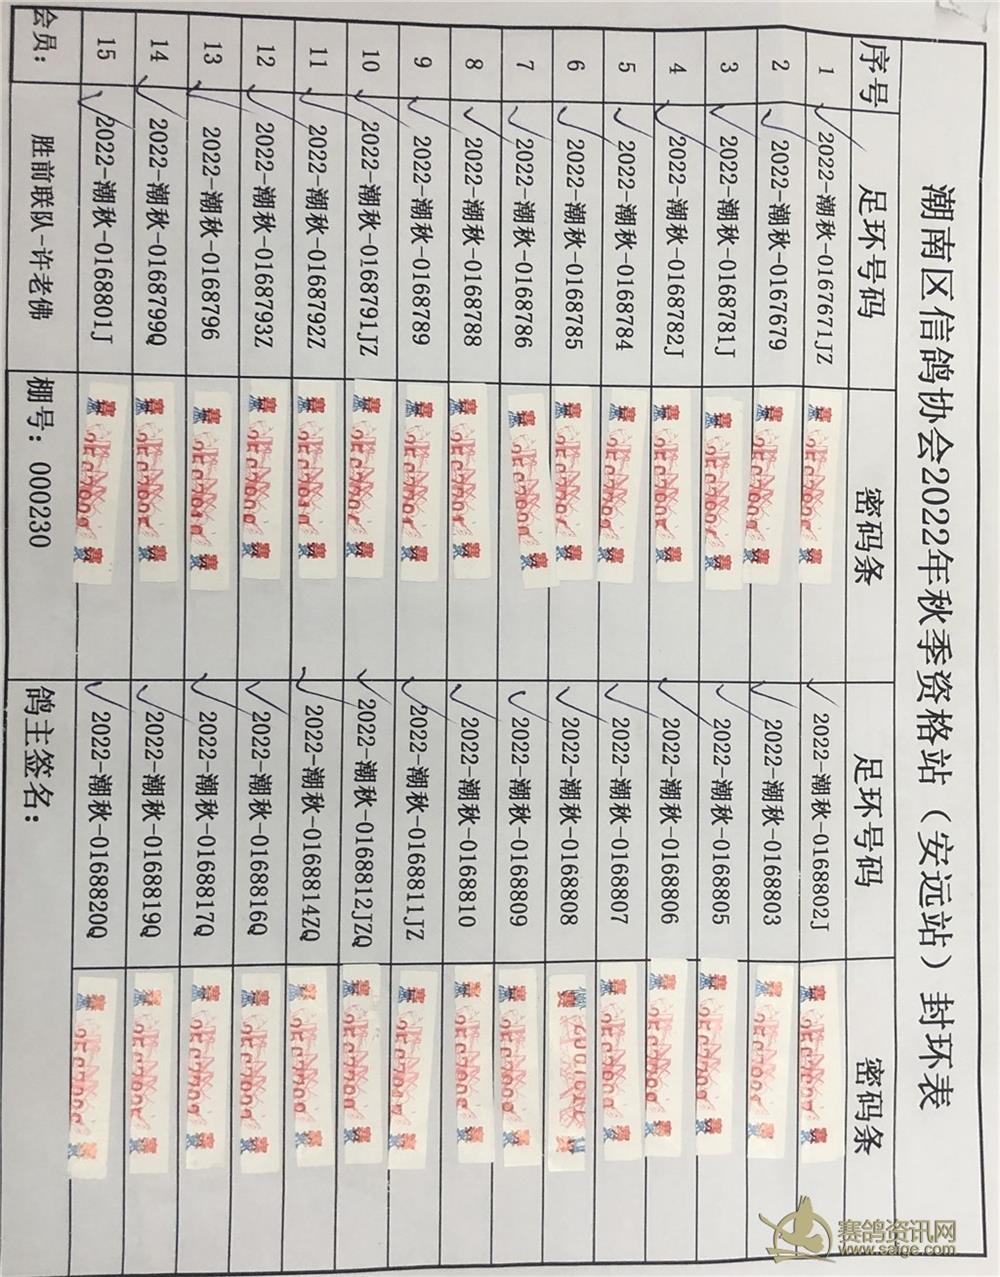 潮南区信鸽协会2022年秋季资格站（安远站）封环表
序号 足环号码 密码条 足环号码 密码条
1 2022-潮秋-0167671JZ 赛 赛 2022-潮秋-0168802J 赛 赛
2 2022-潮秋-0167679 赛 赛 2022-潮秋-0168803 赛 赛
3 2022-潮秋-0168781J 赛 赛 2022-潮秋-0168805 赛 赛
4 2022-潮秋-0168782J 赛 赛 2022-潮秋-0168806 赛 赛
5 2022-潮秋-0168784 赛 赛 2022-潮秋-0168807 赛 赛
6 2022-潮秋-0168785 赛 赛 2022-潮秋-0168808 赛
7 2022-潮秋-0168786 赛 赛 2022-潮秋-0168809 赛 赛
8 2022-潮秋-0168788 赛 赛 2022-潮秋-0168810 赛 赛
9 2022-潮秋-0168789 赛 赛 2022-潮秋-0168811JZ 赛 赛
10 2022-潮秋-0168791JZ 赛 赛 2022-潮秋-0168812JZQ 赛 赛
11 2022-潮秋-0168792Z 赛 赛 2022-潮秋-0168814ZQ 赛 赛
12 2022-潮秋-0168793Z 赛 赛 2022-潮秋-0168816Q 赛 赛
13 2022-潮秋-0168796 赛 赛 2022-潮秋-0168817Q 赛 赛
14 2022-潮秋-0168799Q 赛 赛 2022-潮秋-0168819Q 赛 赛
15 2022-潮秋-0168801J 赛 赛 2022-潮秋-0168820Q 赛 赛
会员： 胜前联队-许老佛 棚号：000230 鸽主签名：
赛鸽资讯网
www.saige.com